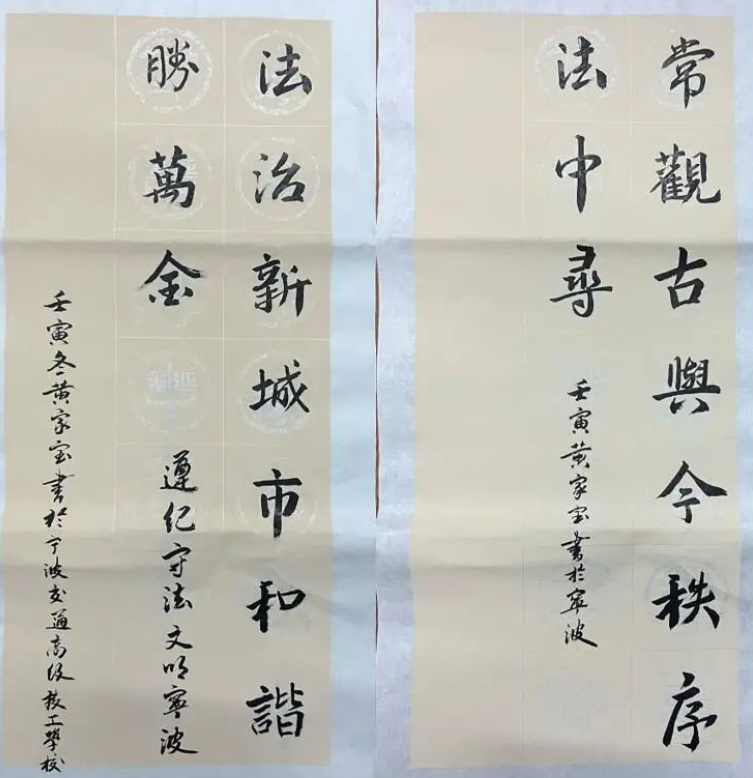 常觀古與今秩序
法中尋
壬寅黄家宝書於寧波
法治新城市和諧
勝萬金
遵纪守法文明寧波
壬寅冬黄家宝書於宁波交通高级技工學校